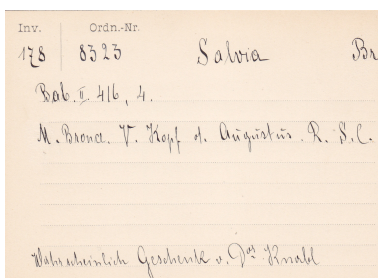 Inv. Ordn.-Nr.
178 8323 Salvia Br
Bab. II. 416, 4.
M. Bronce. V. Kopf d. Augustus. R. S. C.
Wahrscheinlich Geschenk v. Knabl